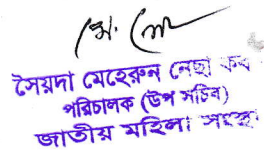 সৈয়দা মেহেরুন নেছা কবি
পরিচালক (উপ সচিব)
জাতীয় মহিলা সংস্থা